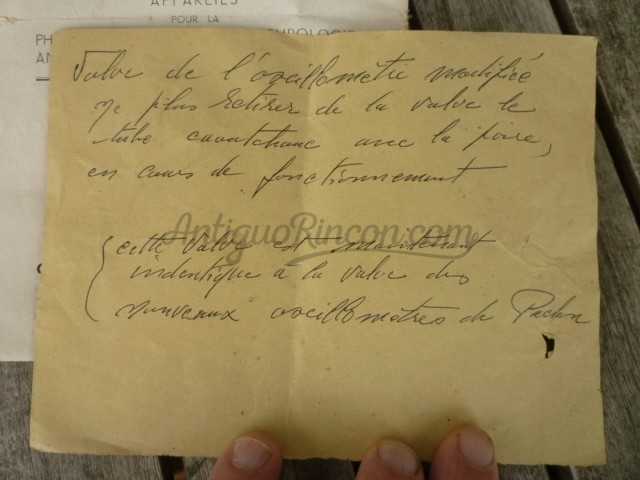 APPAREILS
POUR LA
PH
AN
Valve de l'oscillomètre modifiée
ne plus retirer de la valve le
tube caoutchouc avec la poire,
en cours de fonctionnement
AntiguoRincon.com
cette valve est maintenant
indentique à la valve des
nouveaux oscillomètres de Pachon